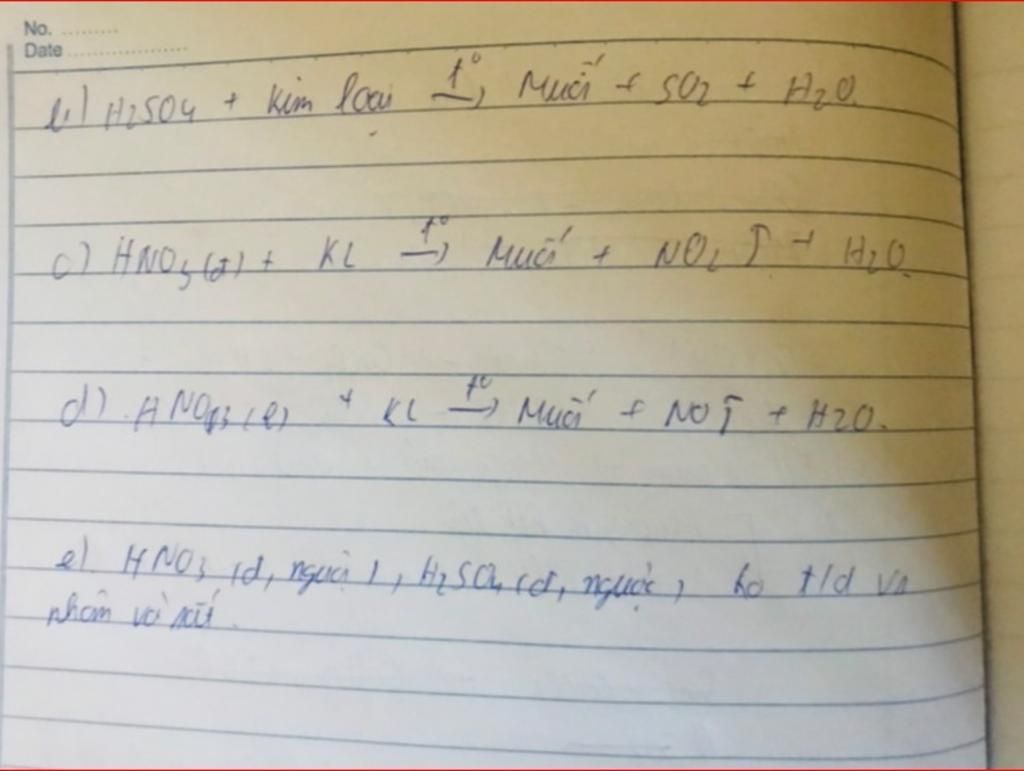 No. ..........
Date ....................
b) H2SO4 + Kim loại t° → Muối + SO2 + H2O.
c) HNO3 (đ) + KL t° → Muối + NO2 ↑ + H2O.
d) HNO3 (l) + KL t° → Muối + NO ↑ + H2O.
e) HNO3 (đ, nguội), H2SO4 (đ, nguội) ko t/d
nhôm và sắt.